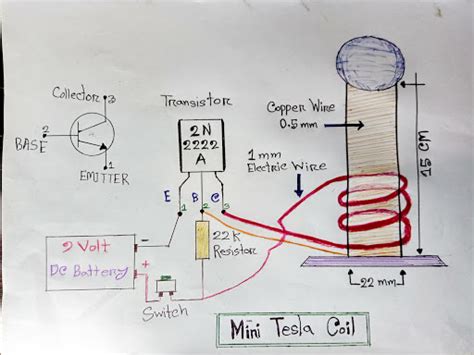 Collector 3
BASE 2
1
EMITTER
Transistor
2N
2222
A
E B C
1 2 3
22K
Resistor
9 Volt
DC Battery
-
+
Switch
Copper Wire
0.5 mm
1mm
Electric Wire
15 CM
22 mm
Mini Tesla Coil